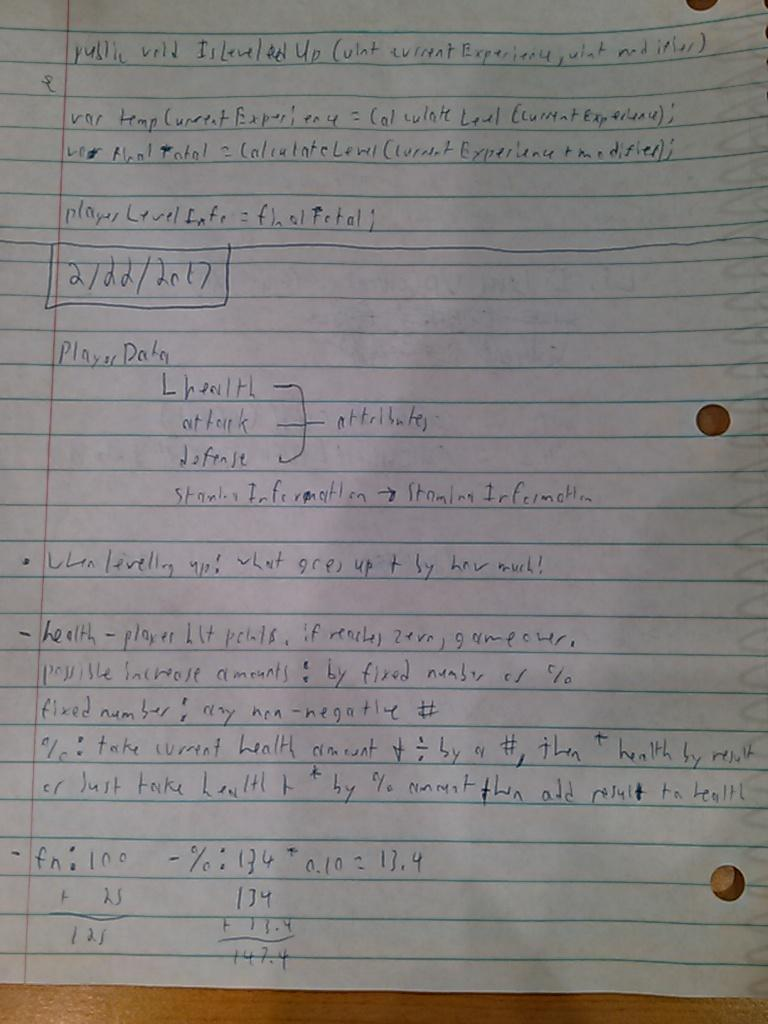 public void IsLeveledUp (uint currentExperience, uint modifier)
{
var tempCurrentExperience = CalculateLevel (currentExperience);
var finalTotal = CalculateLevel (currentExperience + modifier);
playerLevelInfo = finalTotal;
2/22/2017
PlayerData
health
attack attributes
defense
StaminaInformation → StaminaInformation
• When leveling up: what goes up + by how much!
- health - player hit points. if reaches zero, game over.
possible increase amounts: by fixed number or %
fixed number: any non-negative #
%: take current health amount + ÷ by a #, then * health by result
or Just take health + * by % amount then add result to health
- fn: 100 - %: 134 * 0.10 = 13.4
+ 25 134
125 + 13.4
147.4